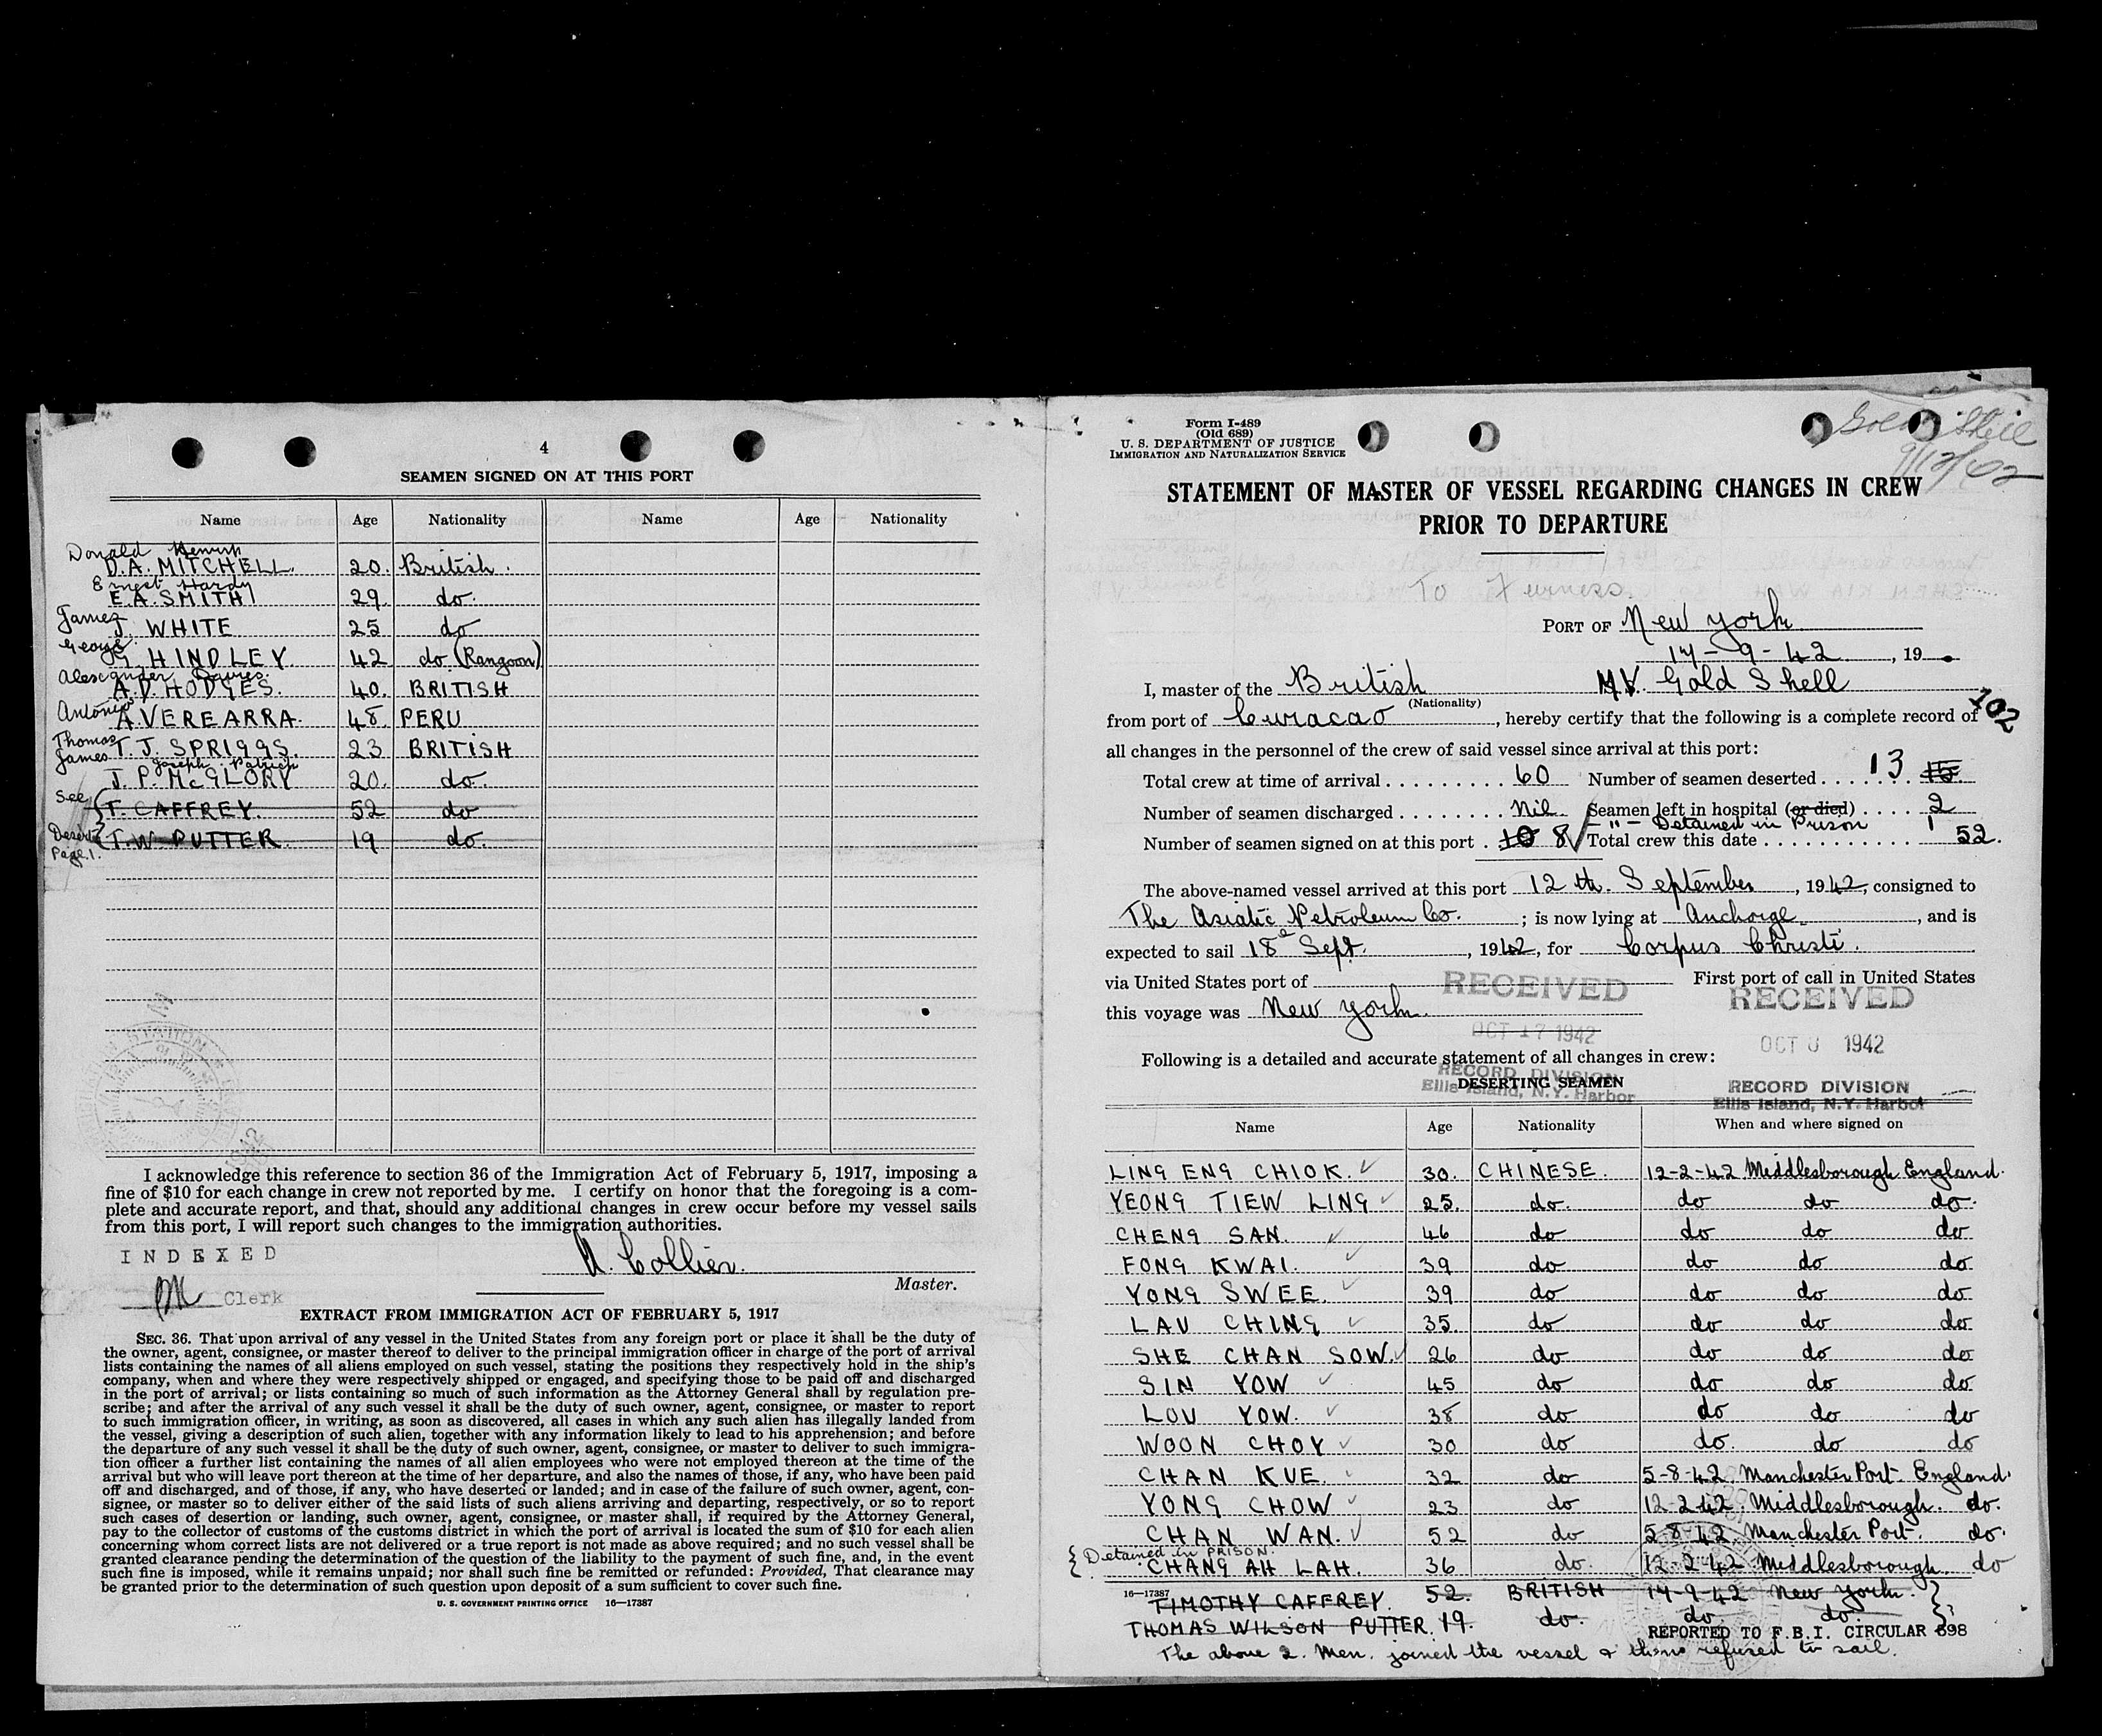 4
SEAMEN SIGNED ON AT THIS PORT
Name Age Nationality Name Age Nationality
Donald
D.A. MITCHELL. 20. British.
Ernest Hardy
E.A. SMITH 29 do.
James
J. WHITE 25 do
George
G. HINDLEY 42 do (Rangoon)
Alexander Davies.
A.D. HODGES. 40. BRITISH
Antonio
A. VEREARRA. 48 PERU
Thomas
James T. J. SPRIGGS. 23 BRITISH
Joseph Patrick
J. P. McGLORY 20. do.
See T. CAFFREY. 52 do
Desert T. W. PUTTER 19 do.
Page 1.
I acknowledge this reference to section 36 of the Immigration Act of February 5, 1917, imposing a
fine of $10 for each change in crew not reported by me. I certify on honor that the foregoing is a com-
plete and accurate report, and that, should any additional changes in crew occur before my vessel sails
from this port, I will report such changes to the immigration authorities.
INDEXED
Collier.
Master.
Clerk
EXTRACT FROM IMMIGRATION ACT OF FEBRUARY 5, 1917
SEC. 36. That upon arrival of any vessel in the United States from any foreign port or place it shall be the duty of
the owner, agent, consignee, or master thereof to deliver to the principal immigration officer in charge of the port of arrival
lists containing the names of all aliens employed on such vessel, stating the positions they respectively hold in the ship's
company, when and where they were respectively shipped or engaged, and specifying those to be paid off and discharged
in the port of arrival; or lists containing so much of such information as the Attorney General shall by regulation pre-
scribe; and after the arrival of any such vessel it shall be the duty of such owner, agent, consignee, or master to report
to such immigration officer, in writing, as soon as discovered, all cases in which any such alien has illegally landed from
the vessel, giving a description of such alien, together with any information likely to lead to his apprehension; and before
the departure of any such vessel it shall be the duty of such owner, agent, consignee, or master to deliver to such immigra-
tion officer a further list containing the names of all alien employees who were not employed thereon at the time of the
arrival but who will leave port thereon at the time of her departure, and also the names of those, if any, who have been paid
off and discharged, and of those, if any, who have deserted or landed; and in case of the failure of such owner, agent, con-
signee, or master so to deliver either of the said lists of such aliens arriving and departing, respectively, or so to report
such cases of desertion or landing, such owner, agent, consignee, or master shall, if required by the Attorney General,
pay to the collector of customs of the customs district in which the port of arrival is located the sum of $10 for each alien
concerning whom correct lists are not delivered or a true report is not made as above required; and no such vessel shall be
granted clearance pending the determination of the question of the liability to the payment of such fine, and, in the event
such fine is imposed, while it remains unpaid; nor shall such fine be remitted or refunded: Provided, That clearance may
be granted prior to the determination of such question upon deposit of a sum sufficient to cover such fine.
U. S. GOVERNMENT PRINTING OFFICE 16—17387
Form I-489
(Old 689)
U. S. DEPARTMENT OF JUSTICE
IMMIGRATION AND NATURALIZATION SERVICE
STATEMENT OF MASTER OF VESSEL REGARDING CHANGES IN CREW
PRIOR TO DEPARTURE
To Furness.
PORT OF New York
17-9-42, 19
I, master of the British M.V. Gold Shell
(Nationality)
from port of Curacao, hereby certify that the following is a complete record of
102
all changes in the personnel of the crew of said vessel since arrival at this port:
Total crew at time of arrival . . . . 60 Number of seamen deserted . . . . 13 15
Number of seamen discharged . . . . Nil. Seamen left in hospital (or died) . . . . 2
— " — Detained in Prison 1
Number of seamen signed on at this port . 10 8 Total crew this date . . . . 52.
The above-named vessel arrived at this port 12th. September, 1942, consigned to
The Asiatic Petroleum Co.; is now lying at Anchorge, and is
expected to sail 18 Sept., 1942, for Corpus Christi.
via United States port of First port of call in United States
this voyage was New York.
RECEIVED
OCT 17 1942
RECORD DIVISION
Ellis Island, N.Y. Harbor
RECEIVED
OCT 1942
RECORD DIVISION
Ellis Island, N.Y. Harbor
Following is a detailed and accurate statement of all changes in crew:
DESERTING SEAMEN
Name Age Nationality When and where signed on
LING ENG CHIOK. 30. CHINESE. 12-2-42 Middlesborough England.
YEONG TIEW LING 25. do. do do do.
CHENG SAN. 46 do do do do
FONG KWAI. 39 do do do do
YONG SWEE. 39 do do do do
LAU CHING 35. do do do do
SHE CHAN SOW. 26 do do do do
SIN YOW 45 do do do do
LOU YOW. 38 do do do do
WOON CHOY 30 do do. do do
CHAN KUE. 32 do 5-8-42. Manchester Port. England.
YONG CHOW 23 do 12-2-42. Middlesborough. do.
CHAN WAN. 52 do 5-8-42 Manchester Port. do.
Detained in PRISON.
CHANG AH LAH. 36 do. 12-2-42 Middlesborough. do
16—17387
TIMOTHY CAFFREY. 52. BRITISH 14-9-42 New York.
THOMAS WILSON PUTTER. 19. do. do. do.
REPORTED TO F.B.I. CIRCULAR 698
The above 2. Men. joined the vessel & then refused to sail.